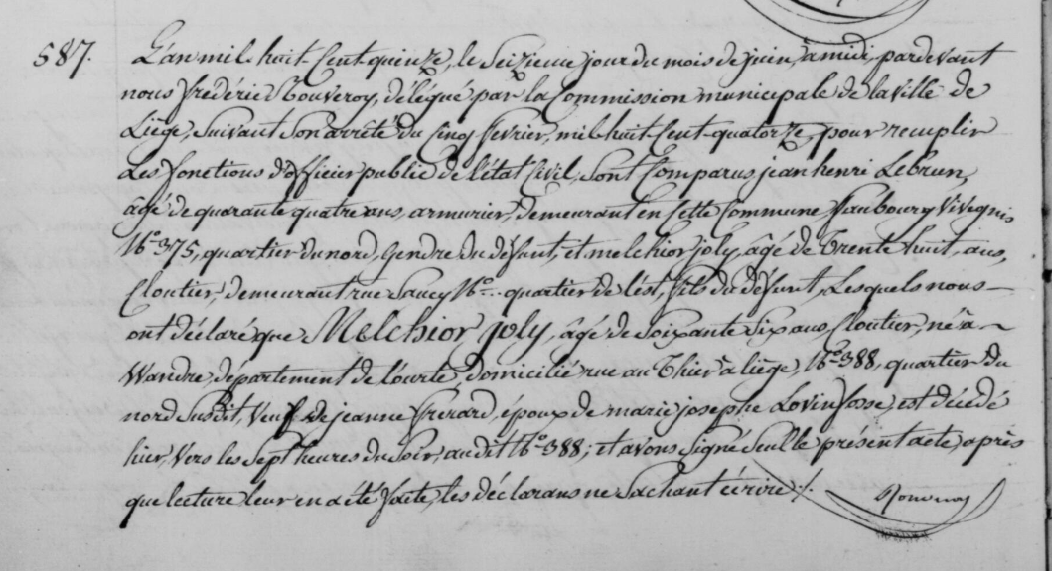 587. L'an mil huit Cent quinze, le Seizieme jour du mois de juin, à midi, pardevant
nous frédéric Rouveroy, délégué par la Commission municipale de la ville de
Liège, Suivant Son arrêté du Cinq fevrier, mil huit Cent quatorze, pour remplir
Les fonctions d'officier public de l'état Civil, Sont Comparus jean henri Lebrun,
âgé de quarante quatre ans, armurier, demeurant en Cette Commune, faubourg Vivegnis
No 375, quartier du nord, Gendre du défunt, et melchior joly, âgé de Trente huit, ans,
Cloutier, demeurant rue Saucy No .. quartier de l'est, fils du défunt, Lesquels nous
ont déclaré que Melchior joly, âgé de Soixante Six ans, Cloutier, né à
Wandre, département de l'ourte, domicilié rue au Thier à liège, No 388, quartier du
nord Susdit, Veuf de jeanne frérard, époux de marie josephe Lovinfosse, est décédé
hier, Vers les Sept heures du Soir, au dit No 388; et avons Signé Seul le présent acte, après
que lecture leur en a été faite, les déclarans ne Sachant écrire ./.
Rouveroy